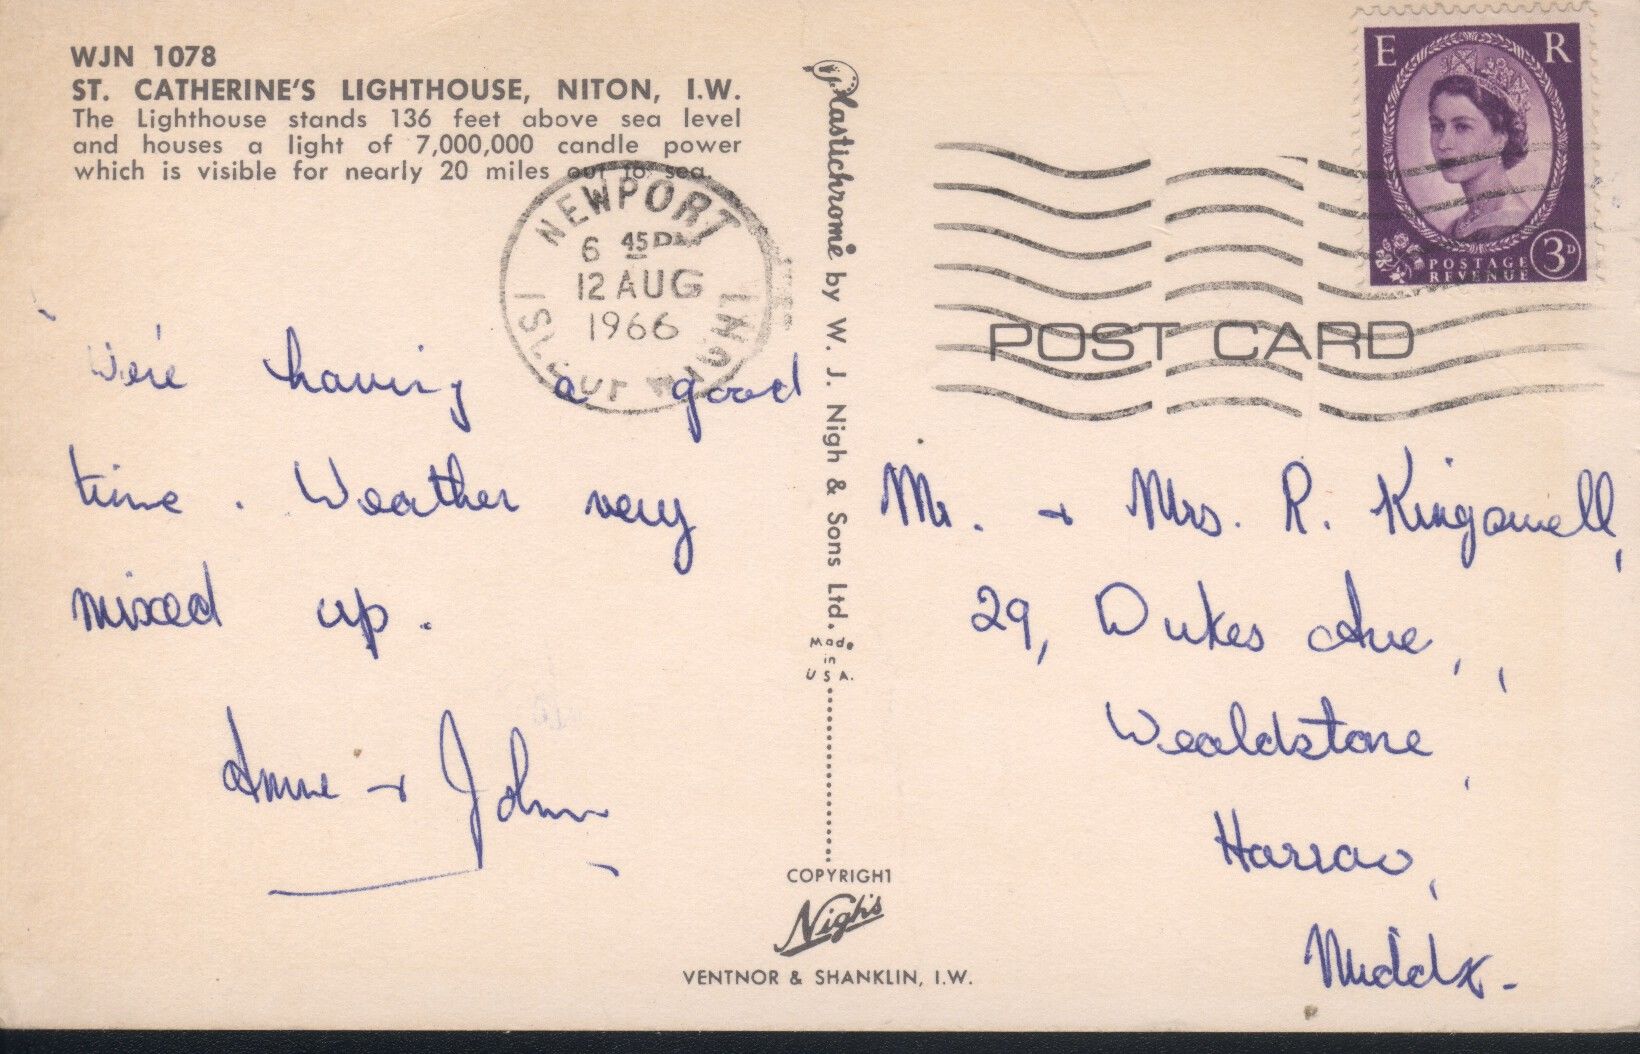 WJN 1078
ST. CATHERINE'S LIGHTHOUSE, NITON, I.W.
The Lighthouse stands 136 feet above sea level
and houses a light of 7,000,000 candle power
which is visible for nearly 20 miles out to sea.
NEWPORT
6 45 PM
12 AUG
1966
ISLE OF WIGHT
We're having a good
time. Weather very
mixed up.
Anne + John
Plastichrome by W. J. Nigh & Sons Ltd.
Made
in
USA.
COPYRIGHT
Nigh's
VENTNOR & SHANKLIN, I.W.
E R
POSTAGE
REVENUE
3D
POST CARD
Mr. + Mrs. R. Kingswell,
29, Dukes Ave,
Wealdstone,
Harrow,
Middx.